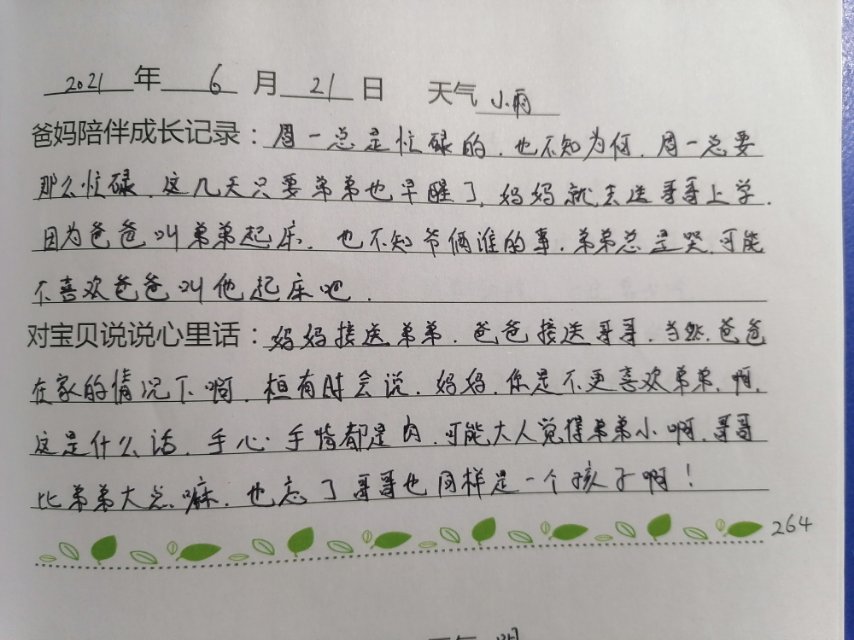 2021年 6 月 21 日 天气 小雨
爸妈陪伴成长记录：周一总是忙碌的，也不知为何，周一总要
那么忙碌，这几天只要弟弟也早醒了，妈妈就去送哥哥上学，
因为爸爸叫弟弟起床，也不知爷俩谁的事，弟弟总是哭，可能
不喜欢爸爸叫他起床吧．
对宝贝说说心里话：妈妈接送弟弟，爸爸接送哥哥，当然，爸爸
在家的情况下啊，桓有时会说，妈妈，你是不更喜欢弟弟，啊，
这是什么话，手心手背都是肉，可能大人觉得弟弟小啊，哥哥
比弟弟大点嘛，也忘了哥哥也同样是一个孩子啊！
264